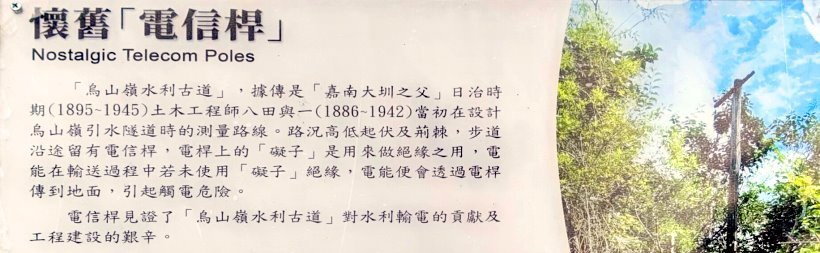 懷舊「電信桿」
Nostalgic Telecom Poles
「烏山嶺水利古道」，據傳是「嘉南大圳之父」日治時
期(1895~1945)土木工程師八田與一(1886~1942)當初在設計
烏山嶺引水隧道時的測量路線。路況高低起伏及荊棘，步道
沿途留有電信桿，電桿上的「礙子」是用來做絕緣之用，電
能在輸送過程中若未使用「礙子」絕緣，電能便會透過電桿
傳到地面，引起觸電危險。
電信桿見證了「烏山嶺水利古道」對水利輸電的貢獻及
工程建設的艱辛。